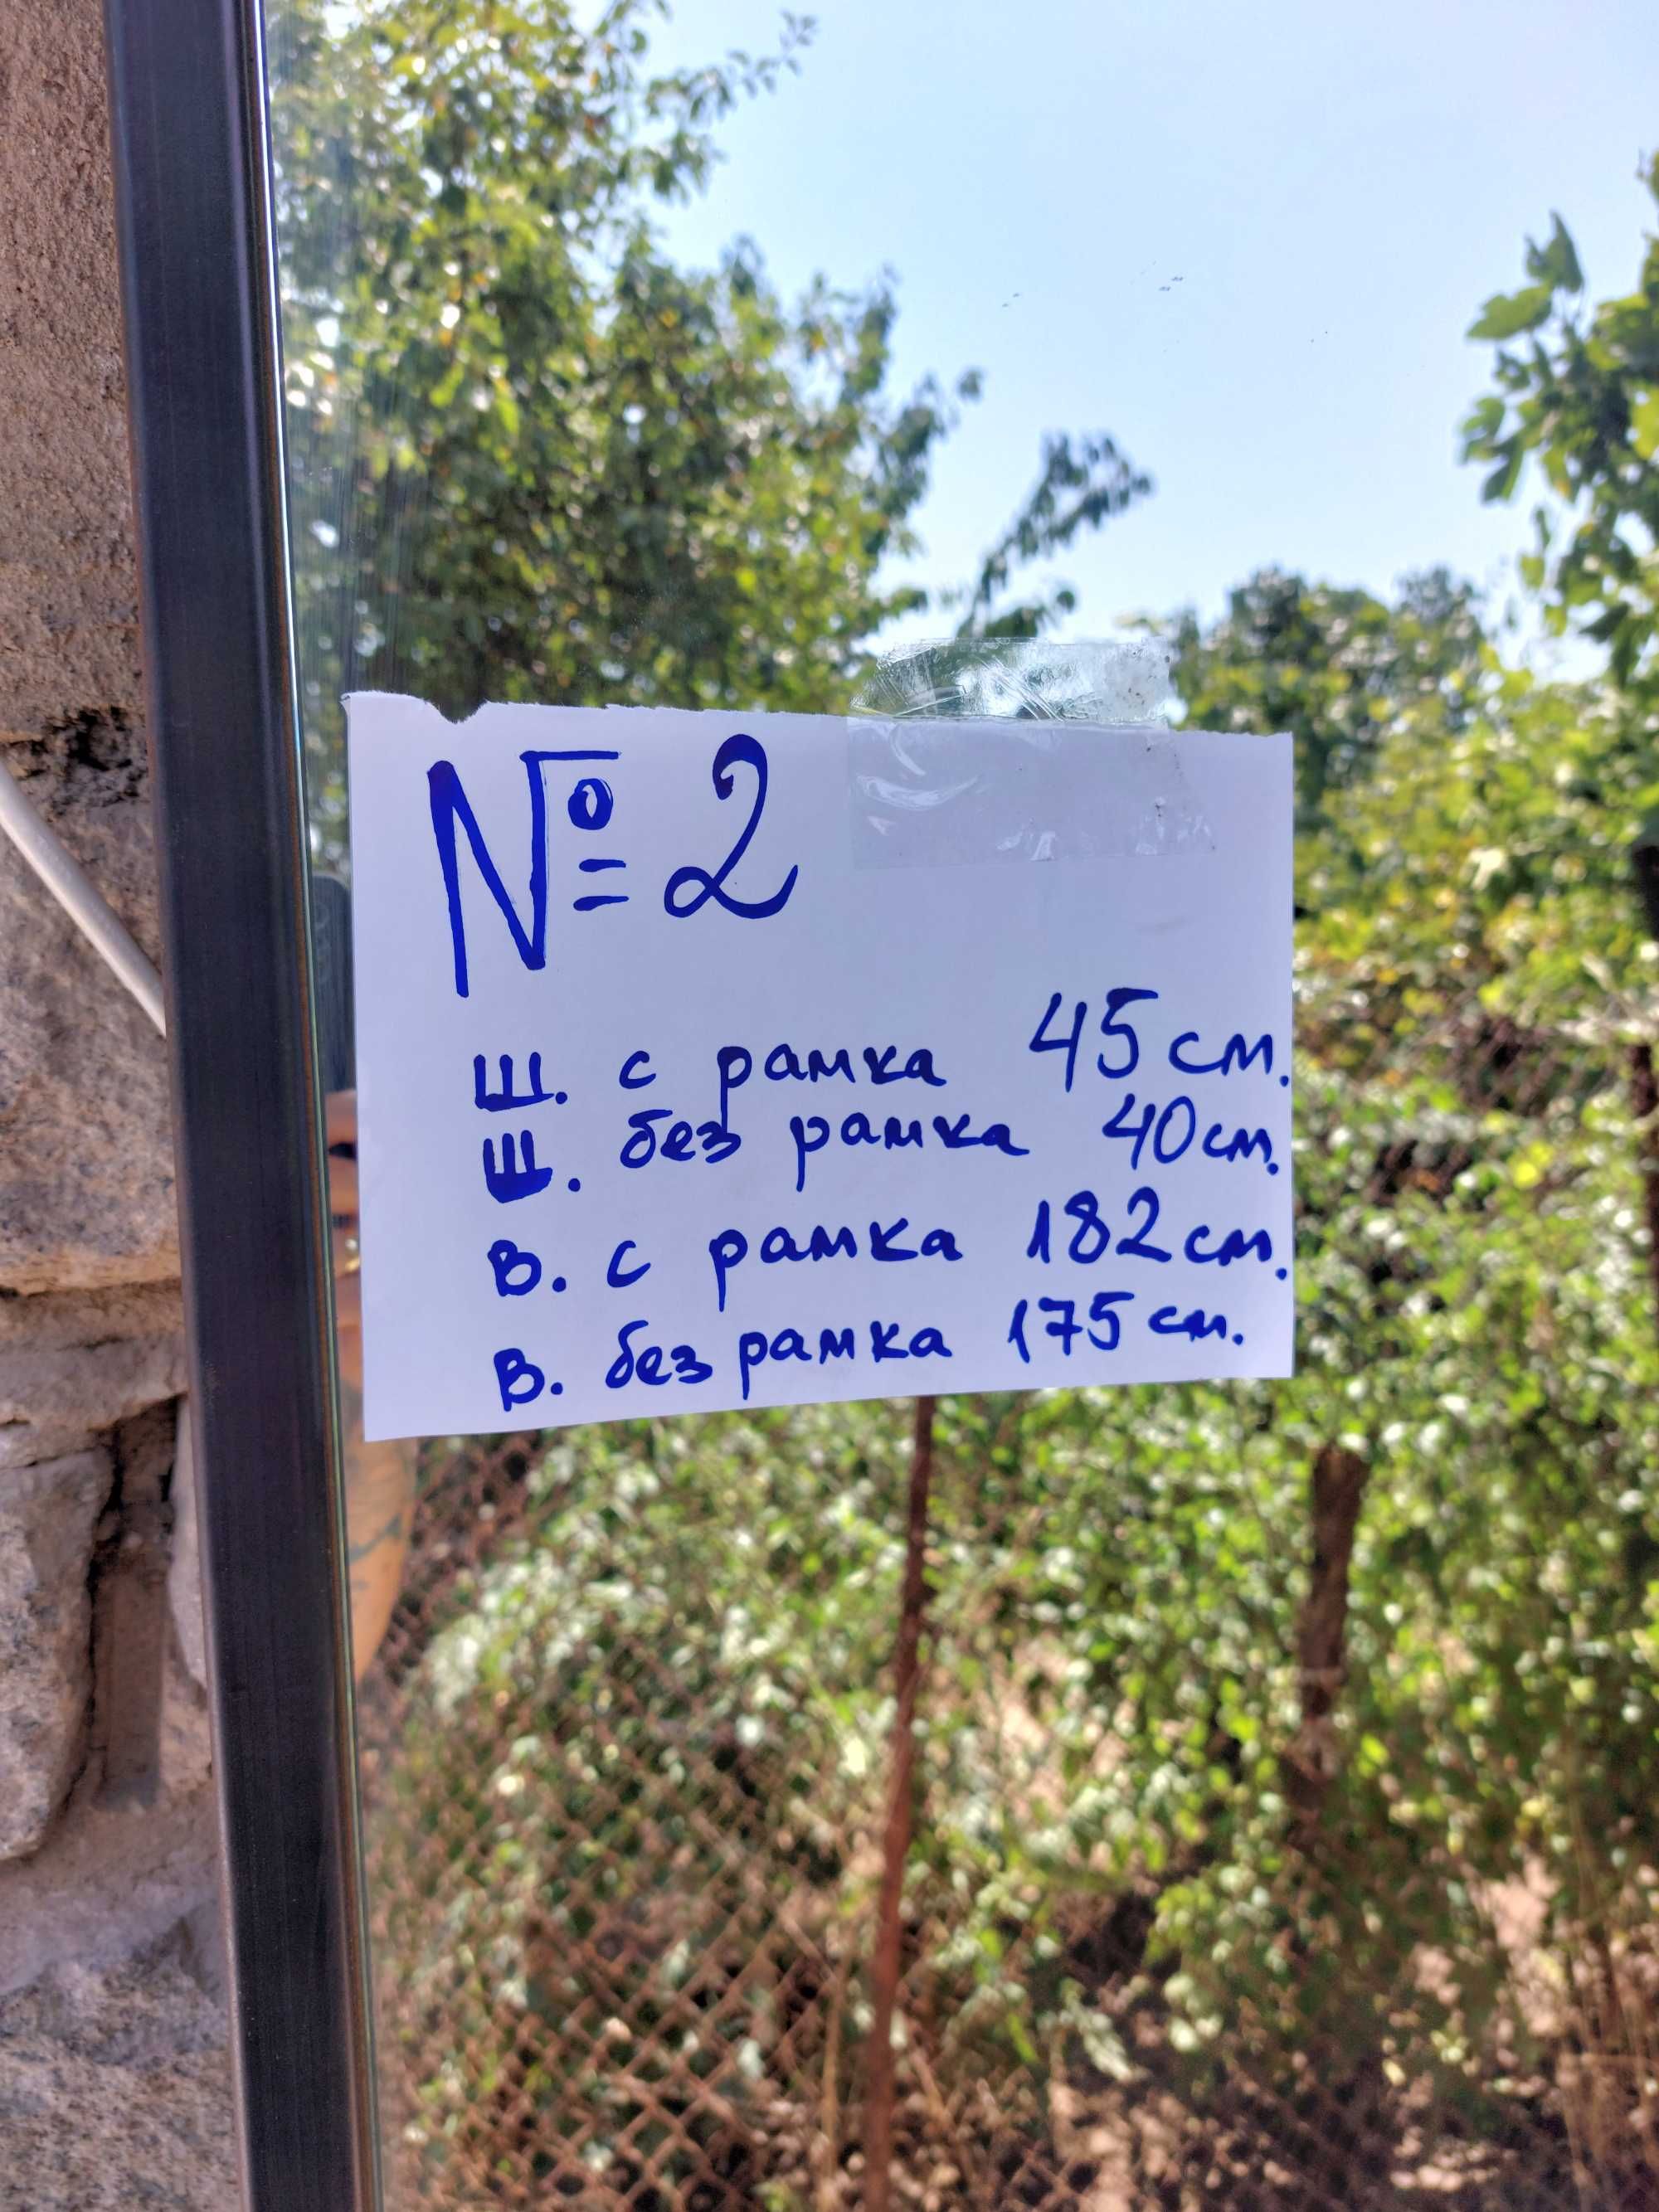 № 2
Ш. с рамка 45 см.
Ш. без рамка 40 см.
В. с рамка 182 см.
В. без рамка 175 см.